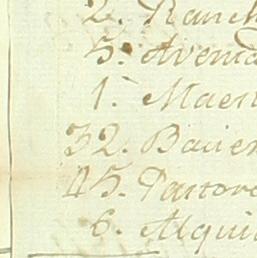 2. Ranch
5. Aventa
1. Maest
32. Baier
45. Pastore
6. Alqui